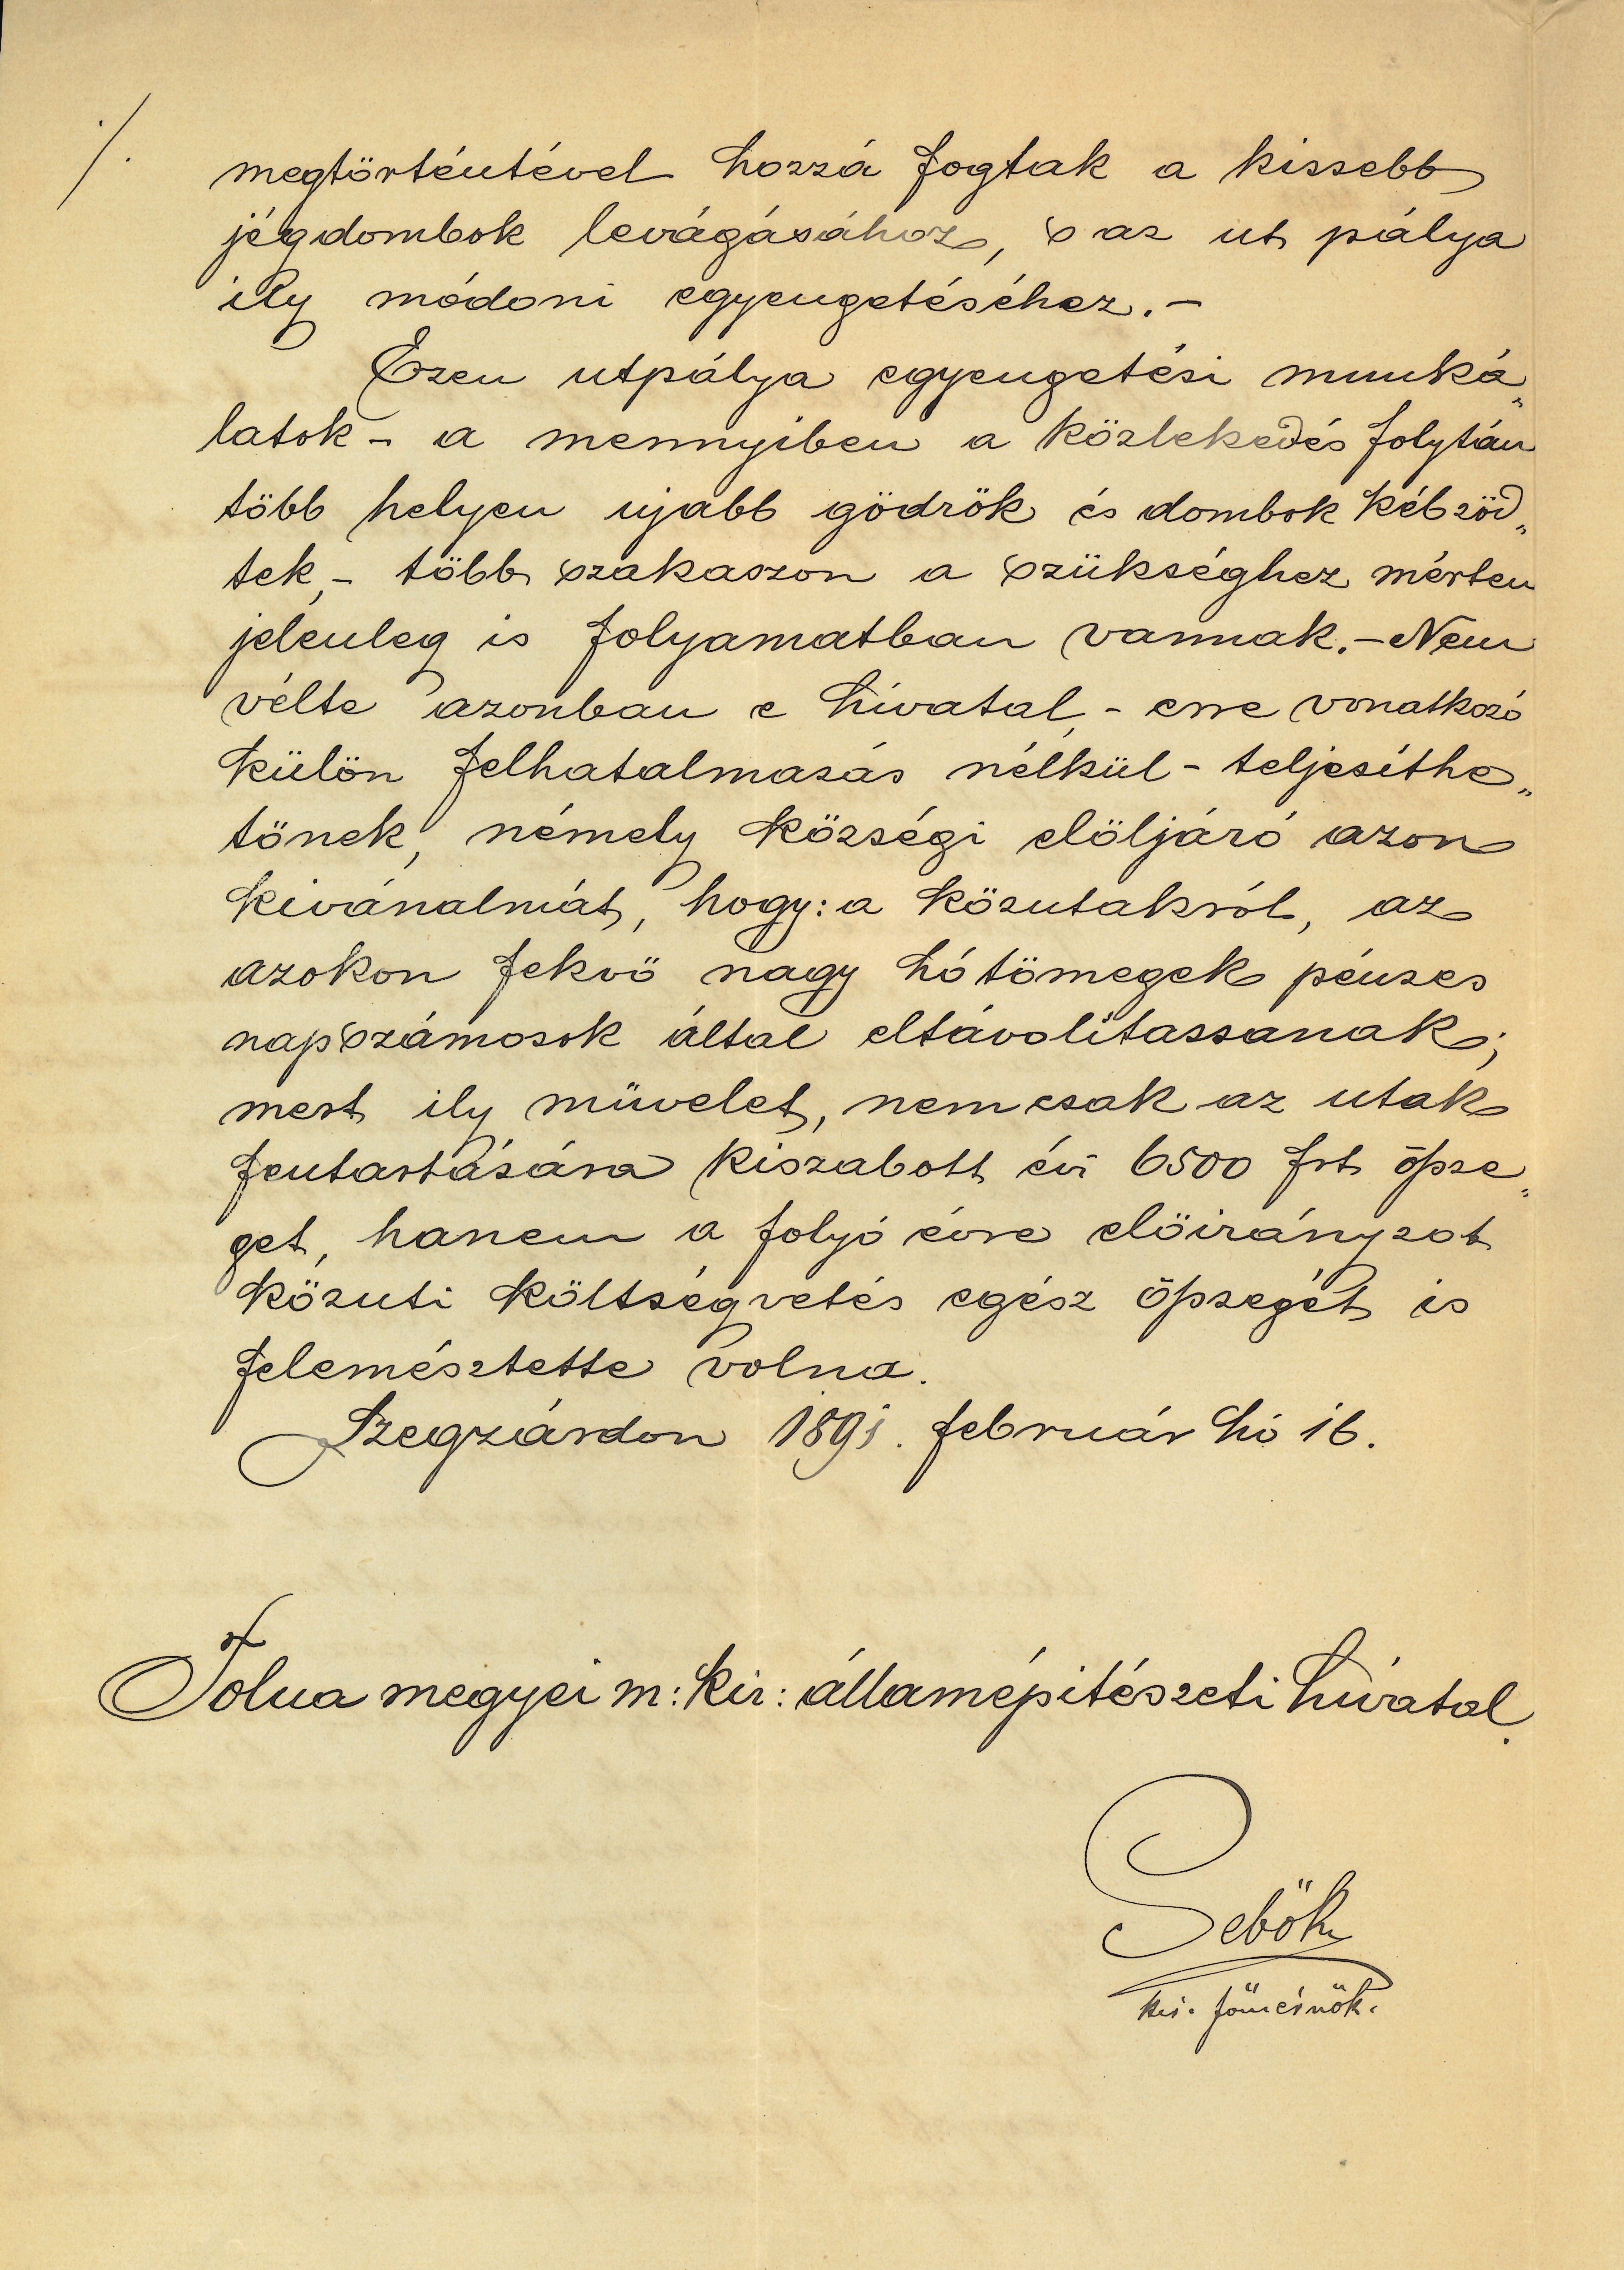 ./.
megtörténtével hozzá fogtak a kissebb
jégdombok levágásához, s az ut pálya
ily módoni egyengetéséhez.-
Ezen utpálya egyengetési munká„
latok - a mennyiben a közlekedés folytán
több helyen ujabb gödrök és dombok kébződ„
tek, - több szakaszon a szükséghez mérten
jelenleg is folyamatban vannak.- Nem
vélte azonban e hivatal, - erre vonatkozó
külön felhatalmazás nélkül - teljesithe„
tőnek, némely községi elöljáró azon
kivánalmát, hogy: a közutakról, az
azokon fekvő nagy hó tömegek pénzes
napszámosok által eltávolitassanak;
mert ily müvelet, nemcsak az utak
fentartására kiszabott évi 6500 frt ősze„
get, hanem a folyó évre előirányzot
közuti költségvetés egész őszegét is
felemésztette volna.
Szegzárdon 1891. február hó 16.
Tolna megyei m: kir: államépitészeti hivatal.
Sebők
kir. főmérnök.